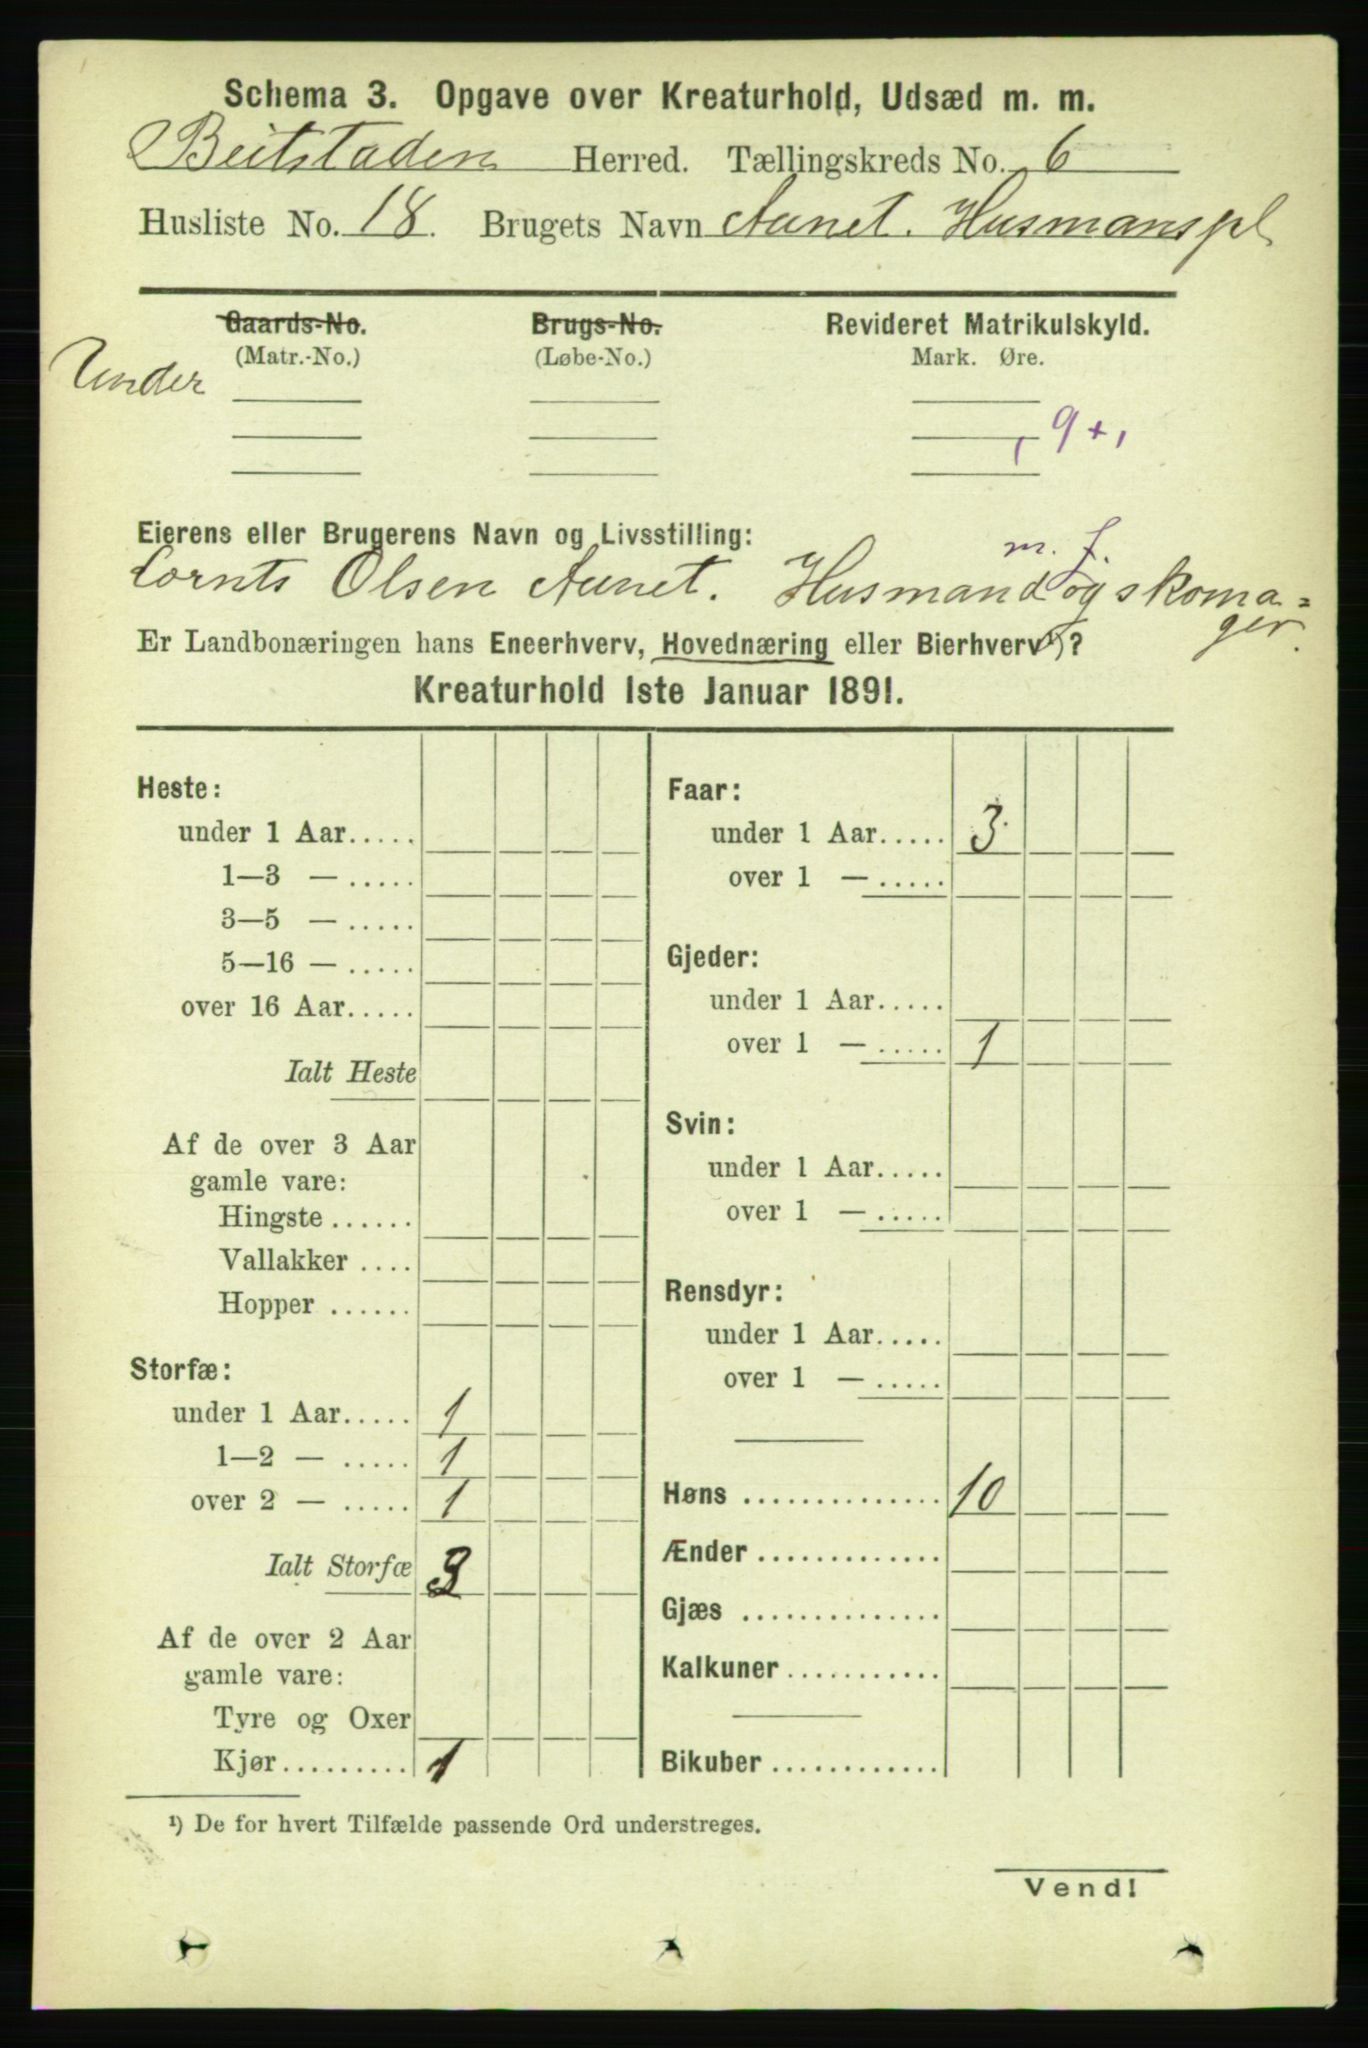 Schema 3. Opgave over Kreaturhold, Udsæd m. m.
Beitstaden Herred. Tællingskreds No. 6
Husliste No. 18. Brugets Navn Aunet. Husmanspl
Gaards-No. Brugs-No. Revideret Matrikulskyld.
(Matr.-No.) (Løbe-No.) Mark. Øre.
Under
, 9 + ,
Eierens eller Brugerens Navn og Livsstilling:
m. J.
Cornts Olsen Aunet. Husmand og skoma=
ger.
Er Landbonæringen hans Eneerhverv, Hovednæring eller Bierhverv¹)?
Kreaturhold 1ste Januar 1891.
Heste:
under 1 Aar.....
1—3 — .....
3—5 — .....
5—16 — .....
over 16 Aar.....
Ialt Heste
Af de over 3 Aar
gamle vare:
Hingste ......
Vallakker ....
Hopper ......
Storfæ:
under 1 Aar..... 1
1—2 — ..... 1
over 2 — ..... 1
Ialt Storfæ 3
Af de over 2 Aar
gamle vare:
Tyre og Oxer
Kjør......... 1
Faar:
under 1 Aar..... 3
over 1 — .....
Gjeder:
under 1 Aar.....
over 1 — ..... 1
Svin:
under 1 Aar.....
over 1 — .....
Rensdyr:
under 1 Aar.....
over 1 — .....
Høns .............. 10
Ænder .............
Gjæs ..............
Kalkuner ...........
Bikuber ............
¹) De for hvert Tilfælde passende Ord understreges.
Vend!